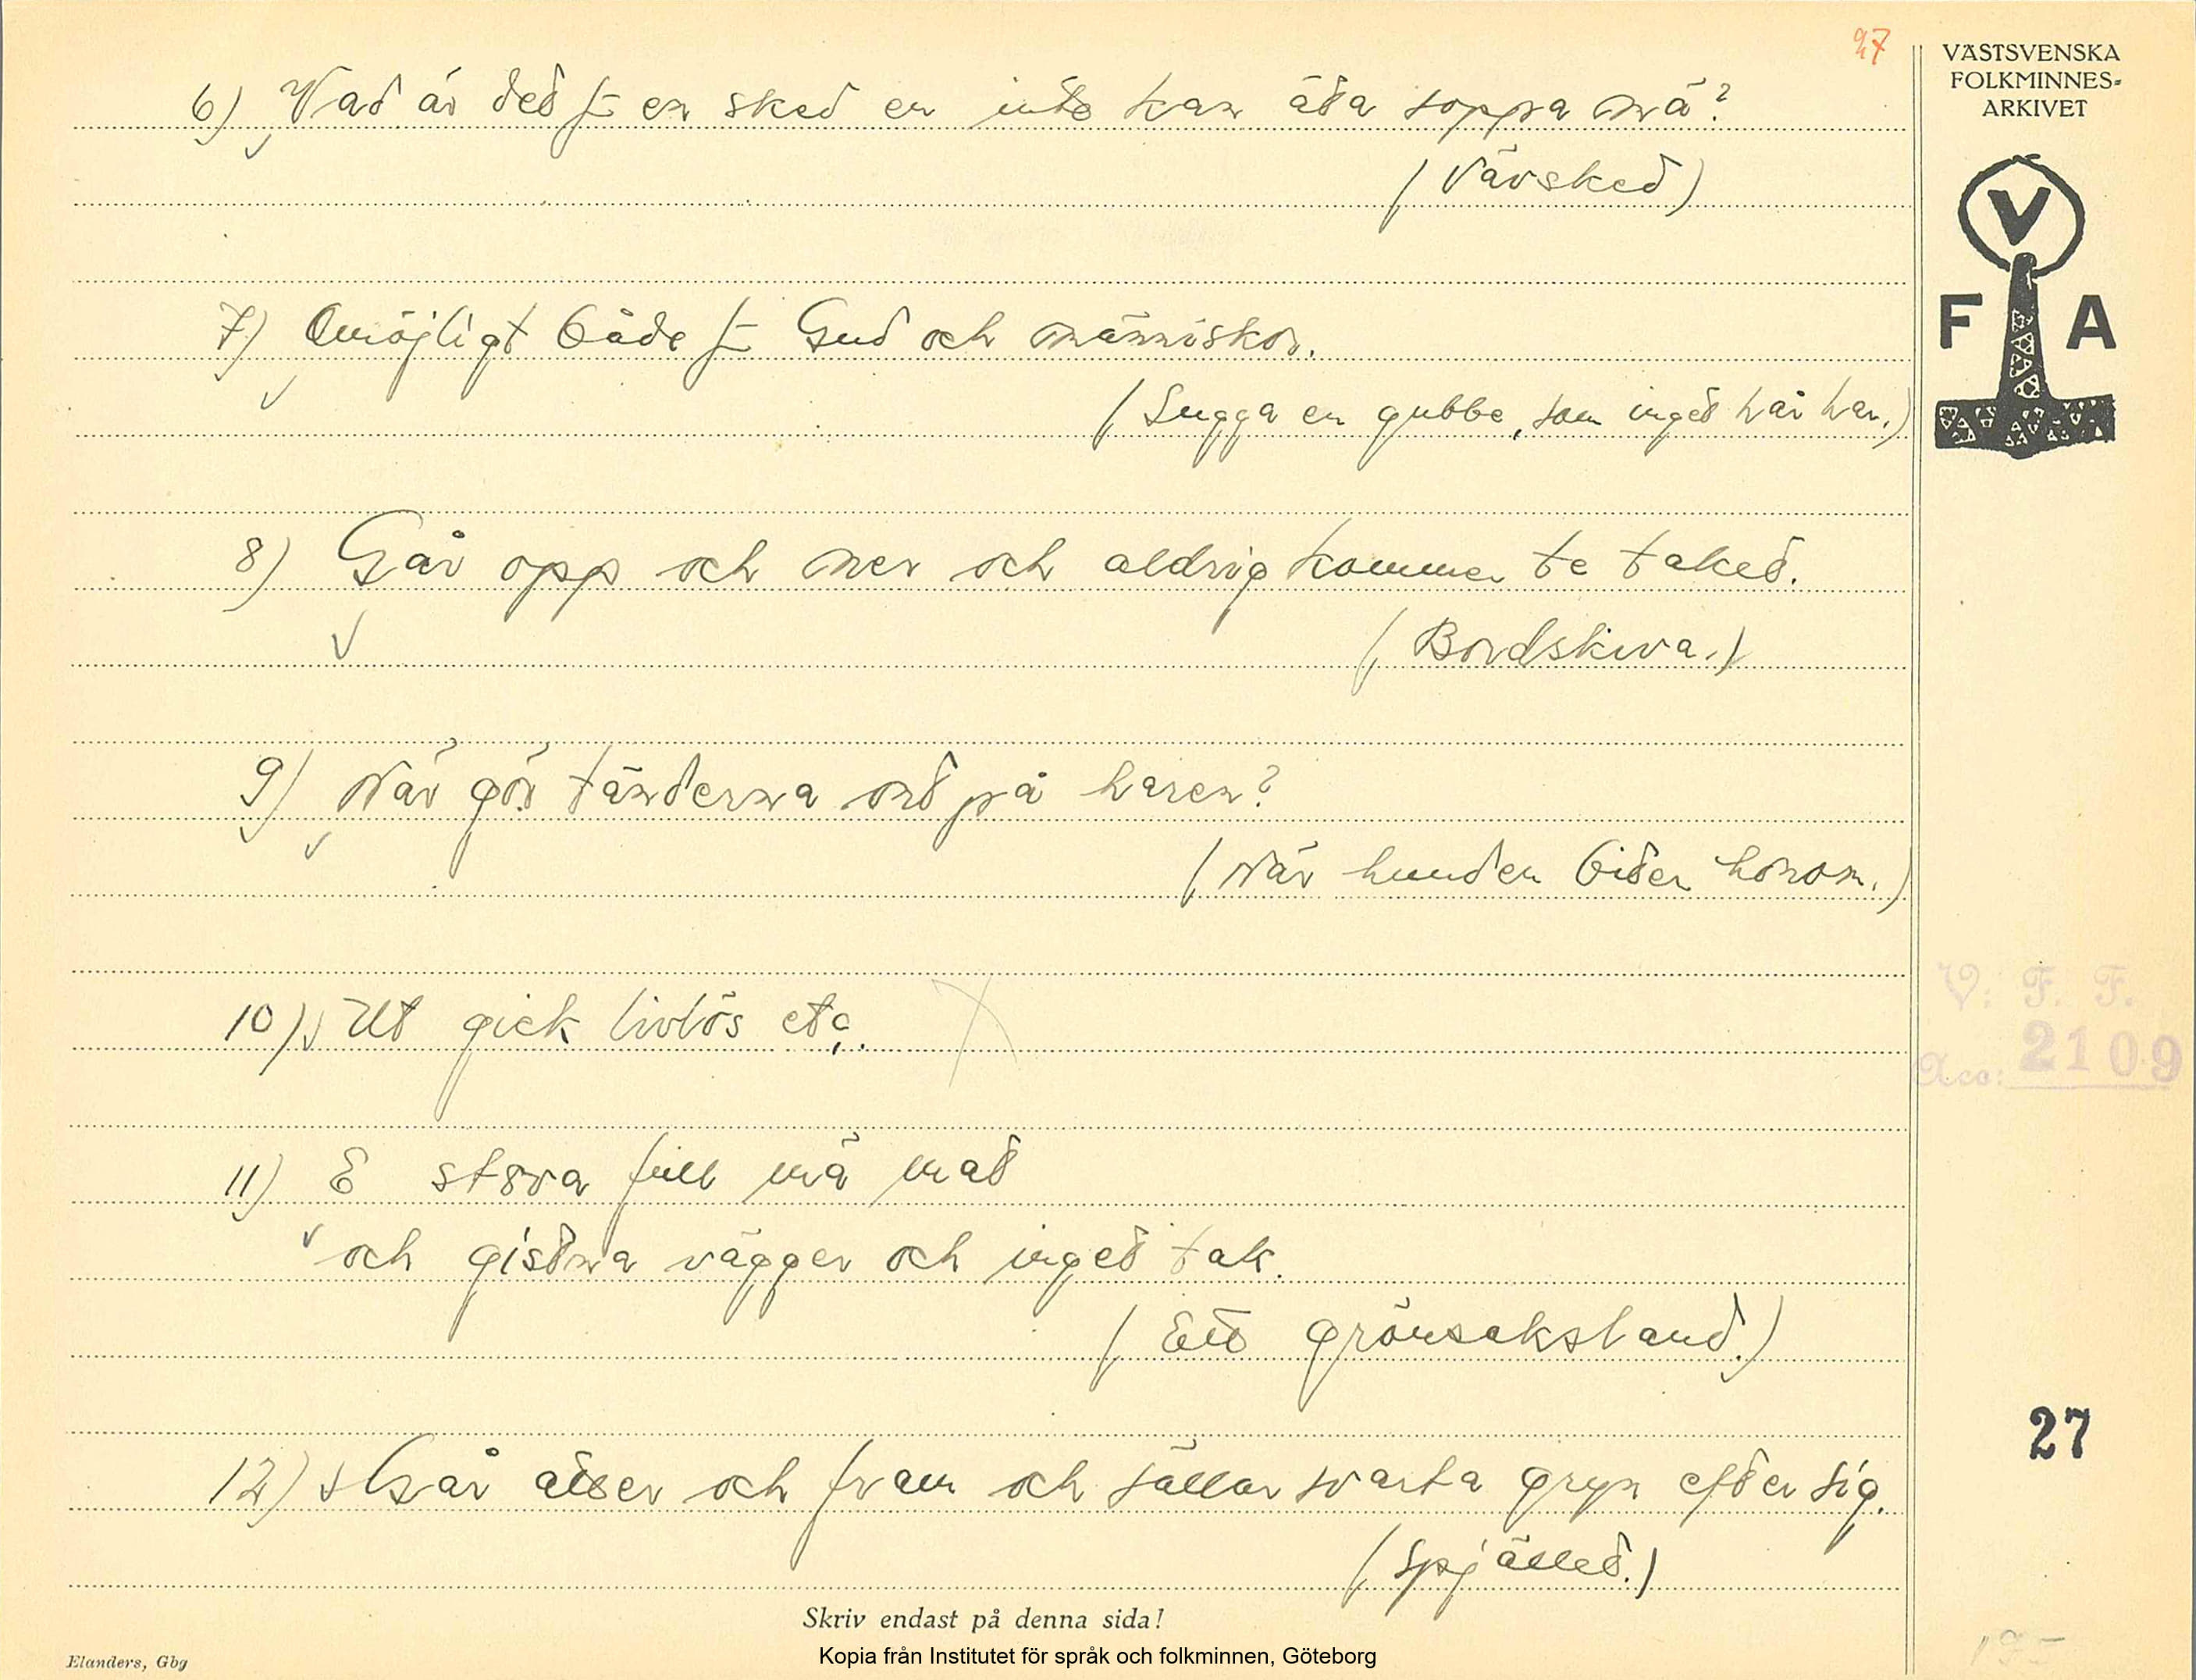 27
VÄSTSVENSKA
FOLKMINNES-
ARKIVET
V
F A
6) Vad är ded f- en sked en inte kan äta soppa mä?
(Vävsked)
7) Omöjligt både f- Gud och människor.
(Lugga en gubbe, som inget hår har.)
8) Går opp och ner och aldrig kommer te taket.
(Bordskiva.)
9) När gör tänderna ont på haren?
(När hunden biter honom.)
10) Ut gick livlös etc.
V. F. F.
Acc: 2109
11) E stova full mä mat
och gistna vägger och inget tak.
(Ett grönsaksland.)
27
12) Går åtter och fram och sållar svarta gryn efter sig.
(Spjället.)
Skriv endast på denna sida!
Kopia från Institutet för språk och folkminnen, Göteborg
Elanders, Gbg